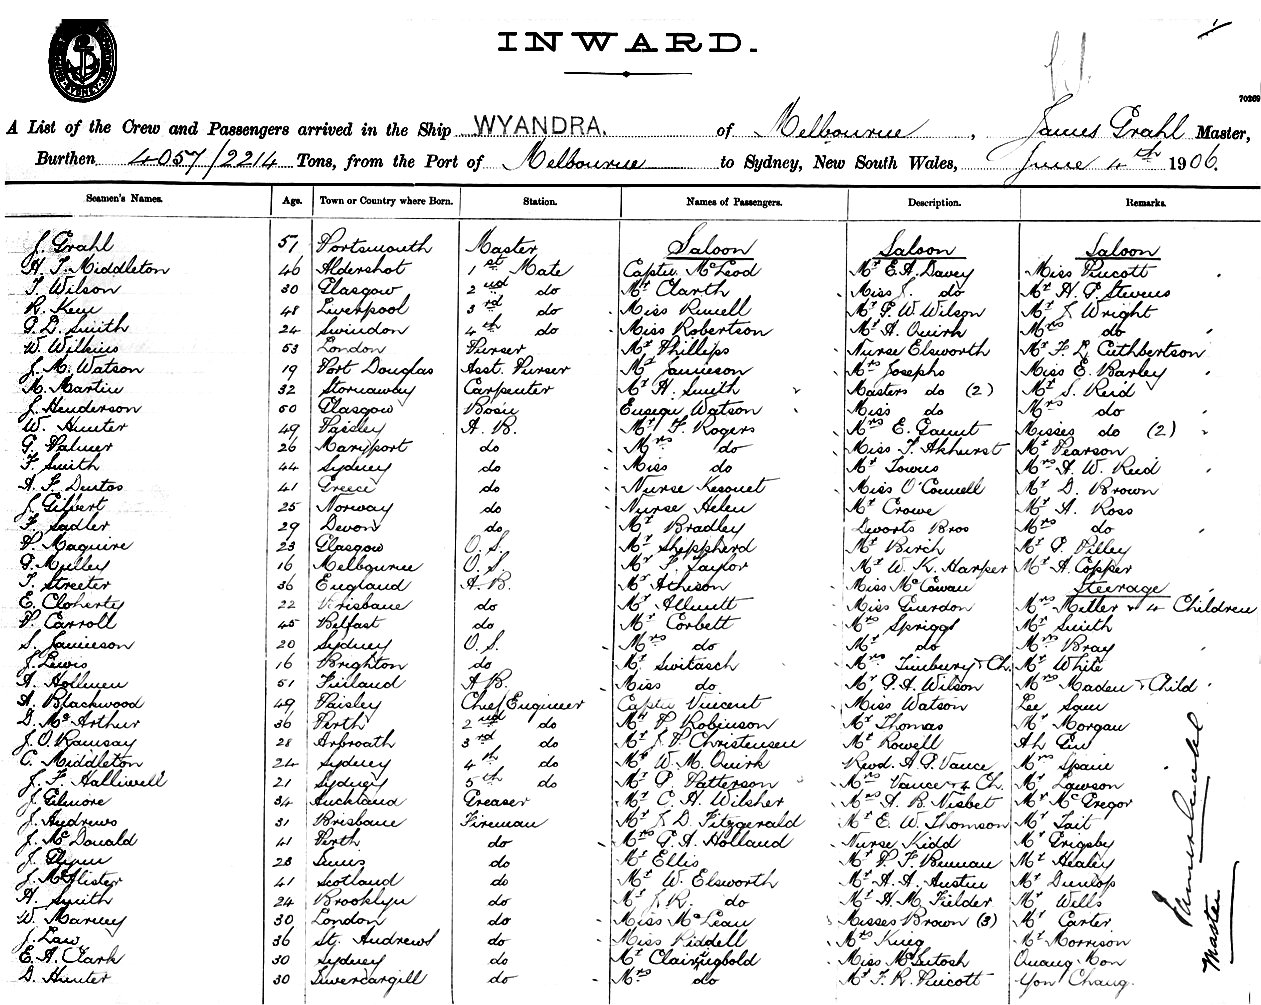 INWARD.
70369
A List of the Crew and Passengers arrived in the Ship WYANDRA. of Melbourne, James Grahl Master,
Burthen 4057/2214 Tons, from the Port of Melbourne to Sydney, New South Wales, June 4th 1906.
Seamen's Names. Age. Town or Country where Born. Station. Names of Passengers. Description. Remarks.
J. Grahl 51 Portsmouth Master Saloon Saloon Saloon
H. T. Middleton 46 Aldershot 1st Mate Captn McLeod Mr E. A. Davey Miss Pucott
T. Wilson 30 Glasgow 2nd do Mr Clarth Miss J. do Mr H. P. Stevens
R. Kew 48 Liverpool 3rd do Miss Rewell Mr P. W. Wilson Mr J Wright
P. D. Smith 24 Swindon 4th do Miss Robertson Mr A. Quirk Mrs do
W. Wilkins 53 London Purser Mr Phillips Nurse Elsworth Mr F. L. Cuthbertson
J. M. Watson 19 Port Douglas Asst. Purser Mr Jamieson Mrs Josephs Miss E. Barley
M. Martin 32 Stornaway Carpenter Mr H. Smith Masters do (2) Mr S. Reid
J. Henderson 50 Glasgow Bosn Ensign Watson Miss do Mrs do
W. Hunter 49 Paisley A. B. Mr T. Rogers Mrs E. Gamut Misses do (2)
G. Palmer 26 Maryport do Mrs do Miss T. Akhurst Mr Pearson
F. Smith 44 Sydney do Miss do Mr Towns Mrs A. W. Reid
A. F. Dentos 41 Greece do Nurse Kesouet Miss O'Connell Mr D. Brown
J. Gilbert 25 Norway do Nurse Helen Mr Crowe Mr A. Ross
F. Sadler 29 Devon do Mr Bradley Leworts Bros Mrs do
P. Maguire 23 Glasgow O. S. Mr Sheppherd Mr Birch Mr P. Pilley
P. Mulley 16 Melbourne O. S. Mr F. Taylor Mr W. K. Harper Mr A. Copper
T. Streeter 36 England A. B. Mr Athison Miss McCowan Steerage
E. Cloherty 22 Brisbane do Mr Allnutt Miss Guerdon Mrs Miller & 4 Children
P. Carroll 45 Belfast do Mr Corbett Mrs Spriggs Mr Smith
S. Jamieson 20 Sydney O. S. Mrs do Mr do Mrs Bray
J. Lewis 16 Brighton do Mr Switasch Mrs Limbury & Ch. Mr White
A. Hollmen 51 Finland A. B. Miss do Mr P. A. Wilson Mrs Maden & Child
A. Blackwood 49 Paisley Chief Engineer Captn Vincent Miss Watson Lee Sam
D. McArthur 36 Perth 2nd do Mr P. Robinson Mr Thomas Mr Morgan
J. O. Ramsay 28 Arbroath 3rd do Mr J. P. Christensen Mr Rowell Ah Gin
C. Middleton 24 Sydney 4th do Mr W. M. Quirk Revd. A. P. Vance Mrs Spain
J. F. Halliwell 21 Sydney 5th do Mr P. Patterson Mrs Vance & 4 Ch. Mr Lawson
J. Gilmore 34 Auckland Greaser Mr C. H. Wilsher Mrs A. B. Nisbet Mr McGregor
J. Andrews 31 Brisbane Fireman Mr J. D. Fitzgerald Mr E. W. Thomson Mr Tait
J. McDonald 41 Perth do Mrs G. A. Holland Nurse Kidd Mr Grigsby
J. Flynn 28 do Mr Ellis Mr P. F. Brennan Mr Healey
J. McAlister 41 Scotland do Mr W. Elsworth Mr A. A. Austin Mr Dunlop
H. Smith 24 Brooklyn do Mr J. R. do Mr H. M. Fielder Mr Wells
W. Marney 30 London do Miss McLean Misses Brown (3) Mr Carter
J. Law 36 St. Andrews do Miss Riddell Mrs King Mr Morrison
E. A. Clark 30 Sydney do Mr Clairingbold Miss McIntosh Quang Hon
D. Hunter 30 Invercargill do Mrs do Mr F. R. Pucott Yon Chang.
Master